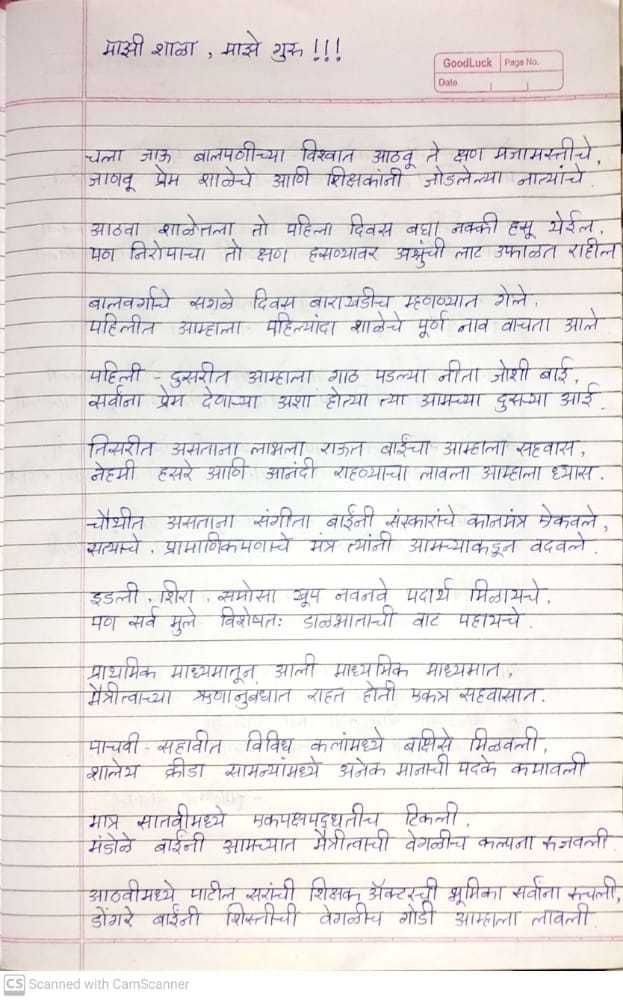 माझी शाळा, माझे गुरु !!!
GoodLuck Page No.
Date
चला जाऊ बालपणीच्या विश्वात आठवू ते क्षण मजामस्तीचे,
जाणवू प्रेम शाळेचे आणि शिक्षकांनी जोडलेल्या नात्यांचे.
आठवा शाळेतला तो पहिला दिवस बघा नक्की हसू येईल,
पण निरोपाचा तो क्षण हसण्यावर अश्रुंची लाट उफाळत राहील
बालवर्गाचे सगळे दिवस बाराखडीच म्हणण्यात गेले,
पहिलीत आम्हाला पहिल्यांदा शाळेचे पूर्ण नाव वाचता आले
पहिली - दुसरीत आम्हाला गाठ पडल्या नीता जोशी बाई,
सर्वांना प्रेम देणाऱ्या अशा होत्या त्या आमच्या दुसऱ्या आई.
तिसरीत असताना लाभला राऊत बाईंचा आम्हाला सहवास,
नेहमी हसरे आणि आनंदी राहण्याचा लावला आम्हाला ध्यास.
चौथीत असताना संगीता बाईंनी संस्कारांचे कानमंत्र ऐकवले,
सत्याचे, प्रामाणिकपणाचे मंत्र त्यांनी आमच्याकडून वदवले.
इडली, शिरा, समोसा खूप नवनवे पदार्थ मिळायचे,
पण सर्व मुले विशेषतः डाळभाताची वाट पहायचे.
प्राथमिक माध्यमातून आली माध्यमिक माध्यमात,
मैत्रीत्वाच्या ऋणानुबंधात राहत होती एकत्र सहवासात.
पाचवी - सहावीत विविध कलांमध्ये बक्षिसे मिळवली,
शालेय क्रीडा सामन्यांमध्ये अनेक मानाची पदके कमावली
मात्र सातवीमध्ये एकपक्षपद्धतीच टिकली,
मंडोळे बाईंनी आमच्यात मैत्रीत्वाची वेगळीच कल्पना रुजवली.
आठवीमध्ये पाटील सरांची शिक्षक अॅक्टरची भूमिका सर्वांना रुचली,
डोंगरे बाईंनी शिस्तीची वेगळीच गोडी आम्हाला लावली.
CS Scanned with CamScanner